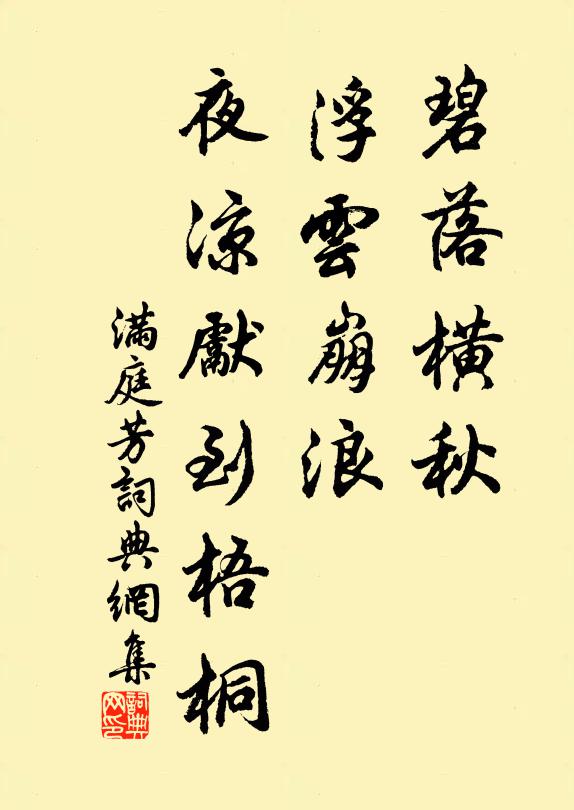 碧落橫秋
浮雲崩浪
夜涼獻到梧桐
滿庭芳詞典網集
詞典
网印